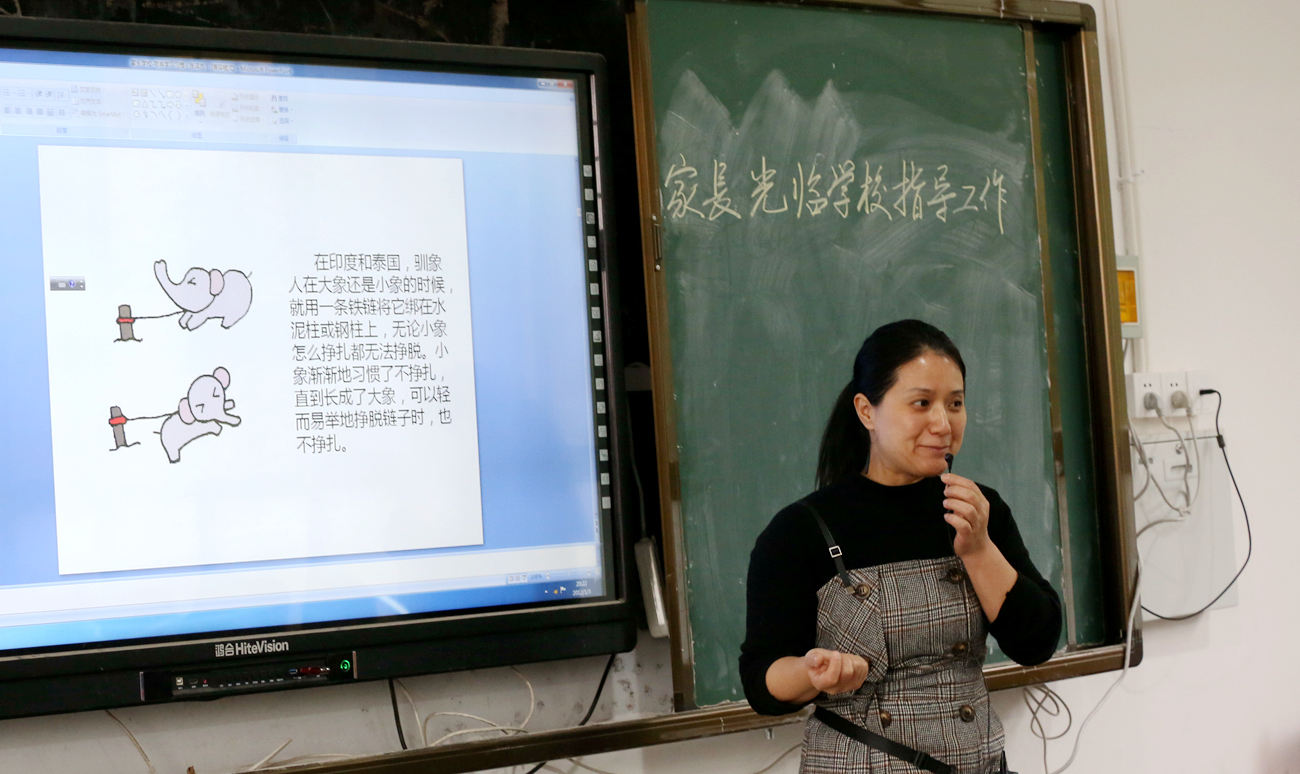 在印度和泰国，驯象
人在大象还是小象的时候，
就用一条铁链将它绑在水
泥柱或钢柱上，无论小象
怎么挣扎都无法挣脱。小
象渐渐地习惯了不挣扎，
直到长成了大象，可以轻
而易举地挣脱链子时，也
不挣扎。
鸿合HiteVision
家長光临学校指导工作